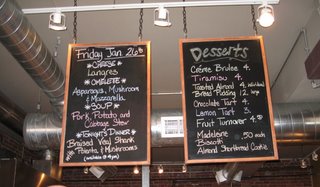 Friday Jan. 26th
CHEESE
Langres
OMELETTE
Asparagus, Mushroom
+ Mozzarella
SOUP
Pork, Potato and
Cabbage Stew
FARMER'S DINNER
Braised Veal Shank
Polenta + Mushrooms
(available @ 4pm)
Desserts
Crème Brulee 4.
Tiramisu 4.
Toasted Almond 4. individual
Bread Pudding 12. large
Chocolate Tart 4.
Lemon Tart 3.
Fruit Turnover
Madeleine .50 each
Biscotti
Almond Shortbread Cookie